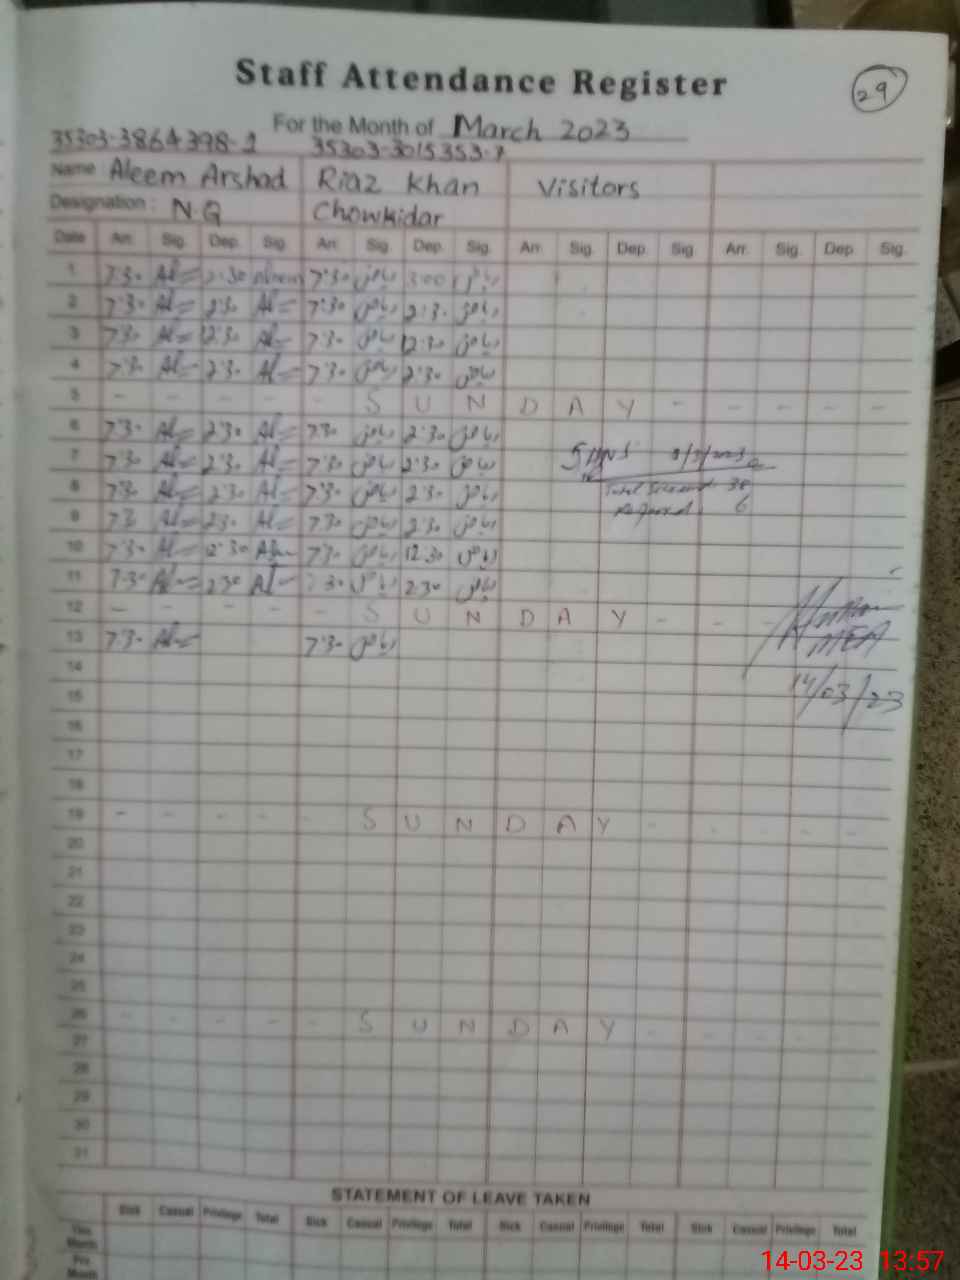 Staff Attendance Register
29
For the Month of March 2023
35303-3864398-1 35303-3015353-7
Name Aleem Arshad Riaz Khan Visitors
Designation : N.Q Chowkidar
Date Arr. Sig. Dep. Sig. Arr. Sig. Dep. Sig. Arr. Sig. Dep. Sig. Arr. Sig. Dep. Sig.
1 7:30 2:30 7:30 ریاض 3:00 ریاض
2 7:30 2:30 7:30 ریاض 2:30 ریاض
3 7:30 12:30 7:30 ریاض 12:30 ریاض
4 7:30 2:30 7:30 ریاض 2:30 ریاض
5 - - - - - S U N D A Y - - - - -
6 7:30 2:30 7:30 ریاض 2:30 ریاض
7 7:30 2:30 7:30 ریاض 2:30 ریاض
8 7:30 2:30 7:30 ریاض 2:30 ریاض
Total 38
9 7:30 2:30 7:30 ریاض 2:30 ریاض
6
10 7:30 12:30 7:30 ریاض 12:30 ریاض
11 7:30 2:30 7:30 ریاض 2:30 ریاض
12 - - - - - S U N D A Y - -
13 7:30 7:30 ریاض
MEA
14
15
14/03/23
16
17
18
19 - - - - - S U N D A Y - - - - -
20
21
22
23
24
25
26 - - - - - S U N D A Y - - - - -
27
28
29
30
31
STATEMENT OF LEAVE TAKEN
Sick Casual Privilege Total Sick Casual Privilege Total Sick Casual Privilege Total Sick Casual Privilege Total
This Month
Pre. Month
14-03-23 13:57